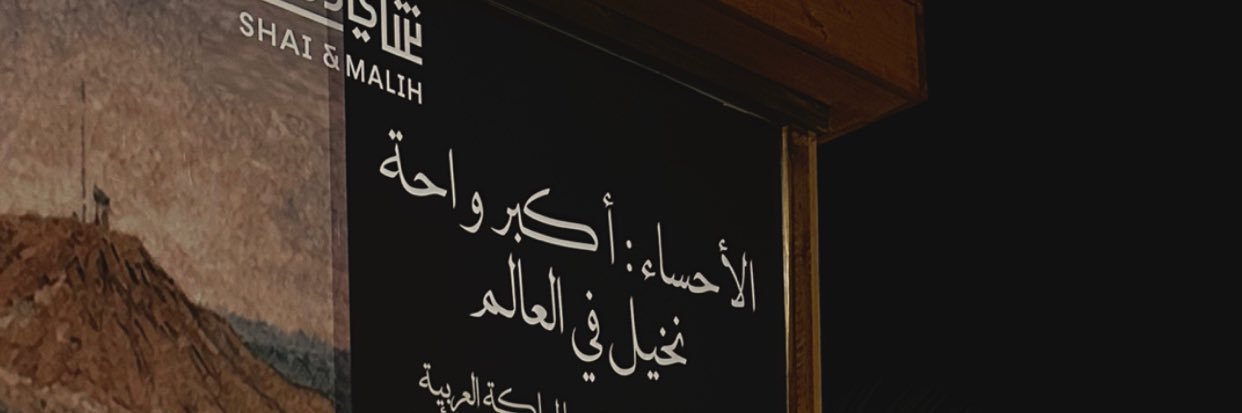 SHAI & MALIH
الأحساء: أكبر واحة
نخيل في العالم
العربية